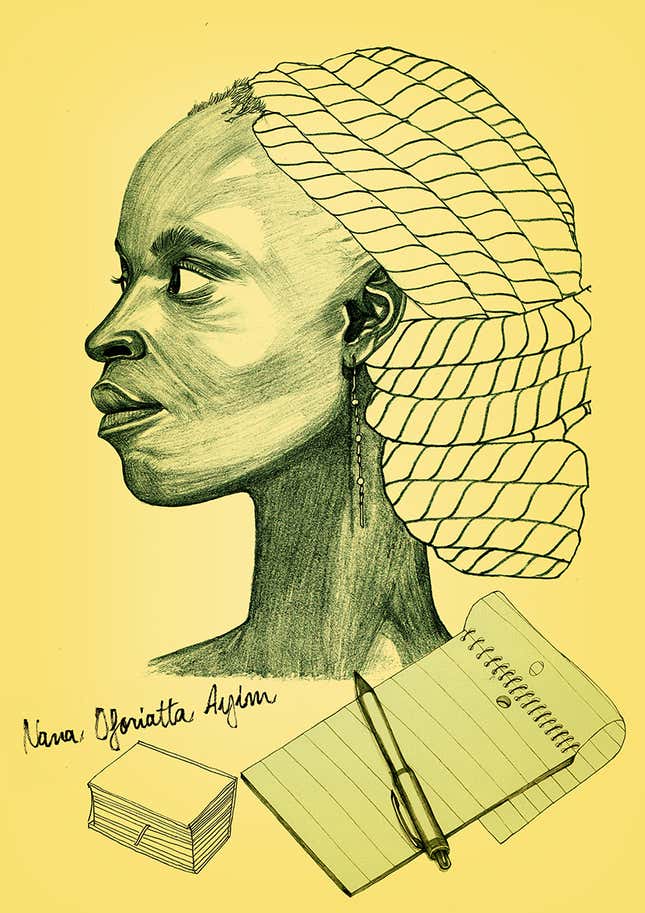 Nana Oforiatta Ayim